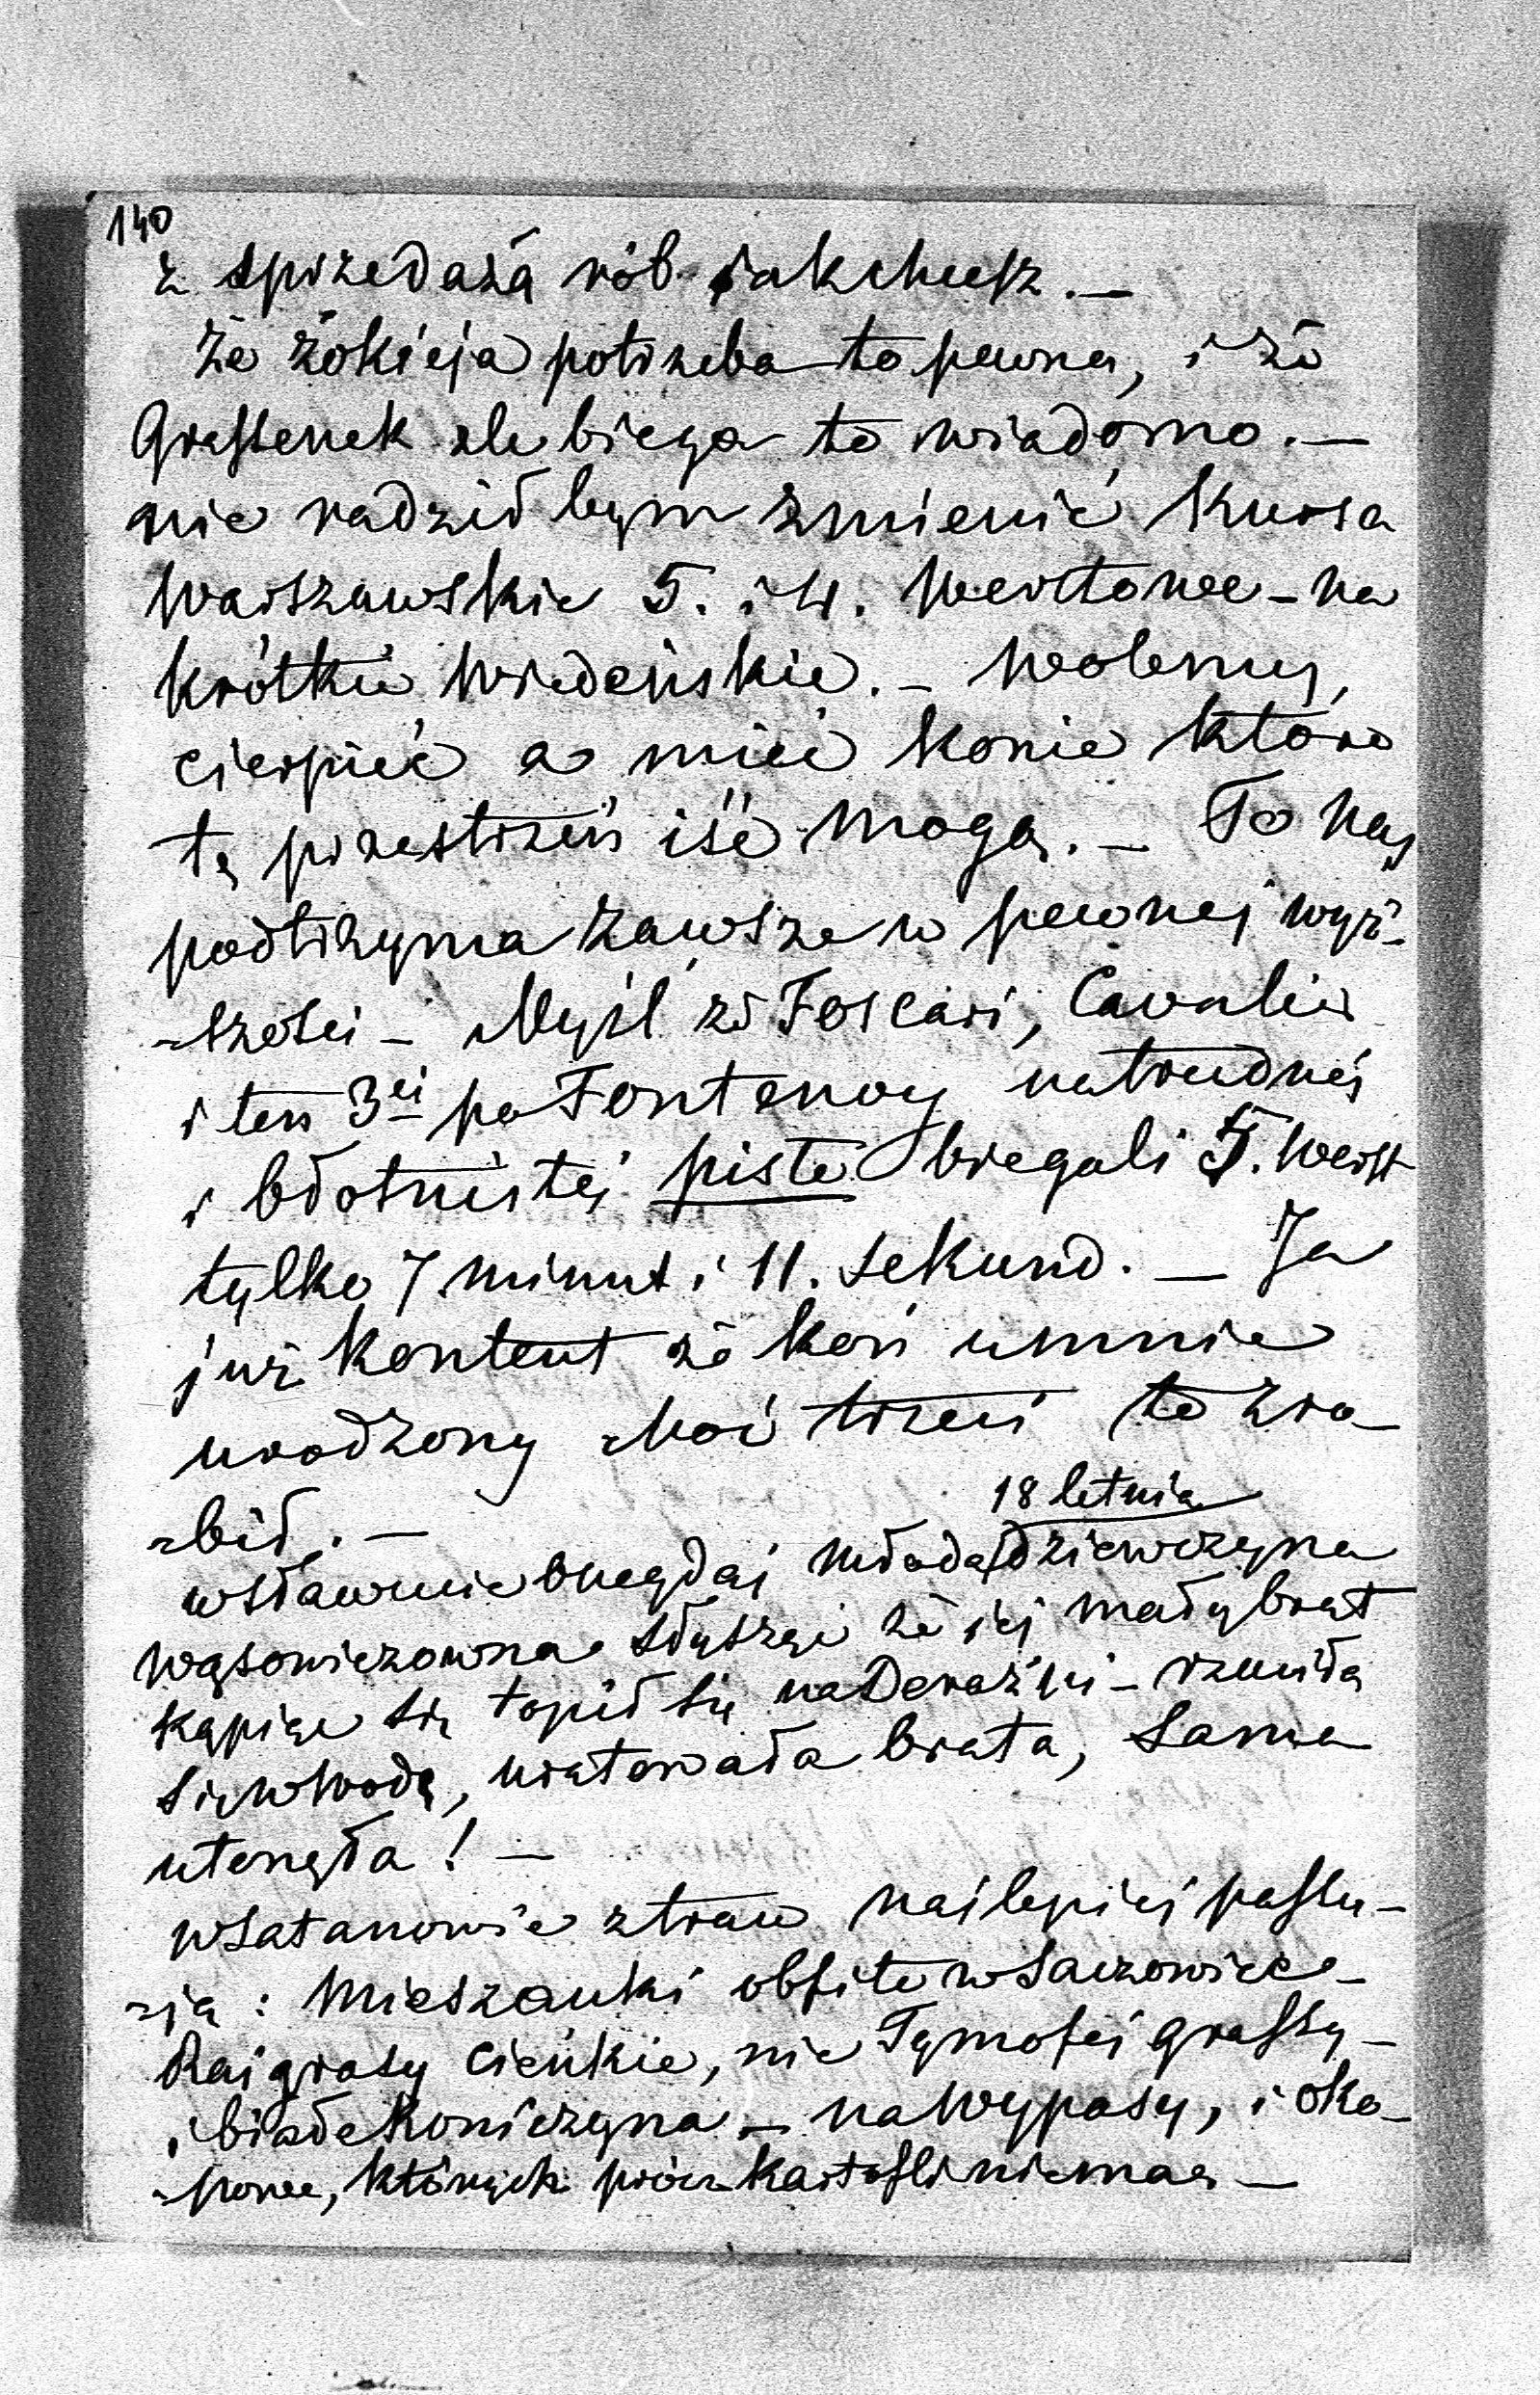 140
z sprzedażą rób jak chcesz. —
Że żokieja potrzeba to pewna, i że
Grafsenek źle biega to wiadomo. —
nie radził bym zmienić kursa
Warszawskie 5. i 4. Werstowe — na
krótkie Wiedeńskie. — Wolemy,
cierpieć a mieć konie które
tę przestrzeń iść mogą. — To nas
podtrzyma zawsze w pewnej wyż-
-szości — Myśl że Foscari, Cavalier
i ten 3ci po Fontenoy na trudnej
i błotnistej piste biegali 5. Werst
tylko 7 minut i 11. sekund. — Ja
już kontent że koń u mnie
urodzony Moi trzeci to zro-
-bił. —
18 letnia
w Sławucie onegdaj młoda dziewczyna
Wąsowiczowna słysząc że jej mały brat
kąpiąc się topił się na Deraźni — rzuciła
się w wodę, uratowała brata, sama
utonęła! —
w Satanowie z traw najlepiej pafsu-
-ją: Mieszanki obfite w Saczowice —
Raigrasy cieńkie, nie Tymofei grafsy —
i białe koniczyna — na wypasy, i oko-
-powe, których prócz kartofli niema —